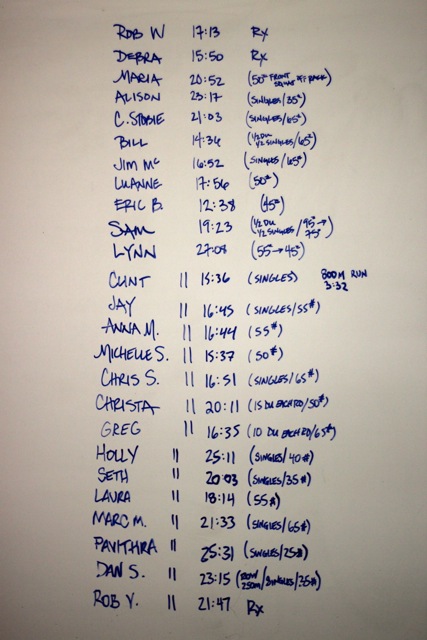 ROB W 17:13 RX
DEBRA 15:50 RX
MARIA 20:52 (50# FRONT SQUAT OFF RACK)
ALISON 23:17 (SINGLES/35#)
C. STOBIE 21:03 (SINGLES/65#)
BILL 14:36 (1/2 DU 1/2 SINGLES/65#)
JIM MC 16:52 (SINGLES/65#)
LUANNE 17:56 (50#)
ERIC B. 12:38 (45#)
SAM 19:23 (1/2 DU 1/2 SINGLES/95#→75#)
LYNN 27:08 (55#→45#)
CLINT || 15:36 (SINGLES) 800M RUN 3:32
JAY || 16:45 (SINGLES/55#)
ANNA M. || 16:44 (55#)
MICHELLE S. || 15:37 (50#)
CHRIS S. || 16:51 (SINGLES/65#)
CHRISTA || 20:11 (15 DU EACH RD/50#)
GREG || 16:35 (10 DU EACH RD/65#)
HOLLY || 25:11 (SINGLES/40#)
SETH || 20:03 (SINGLES/35#)
LAURA || 18:14 (55#)
MARC M. || 21:33 (SINGLES/65#)
PAVITHRA || 25:31 (SINGLES/25#)
DAN S. || 23:15 (ROW 250M/SINGLES/35#)
ROB Y. || 21:47 RX